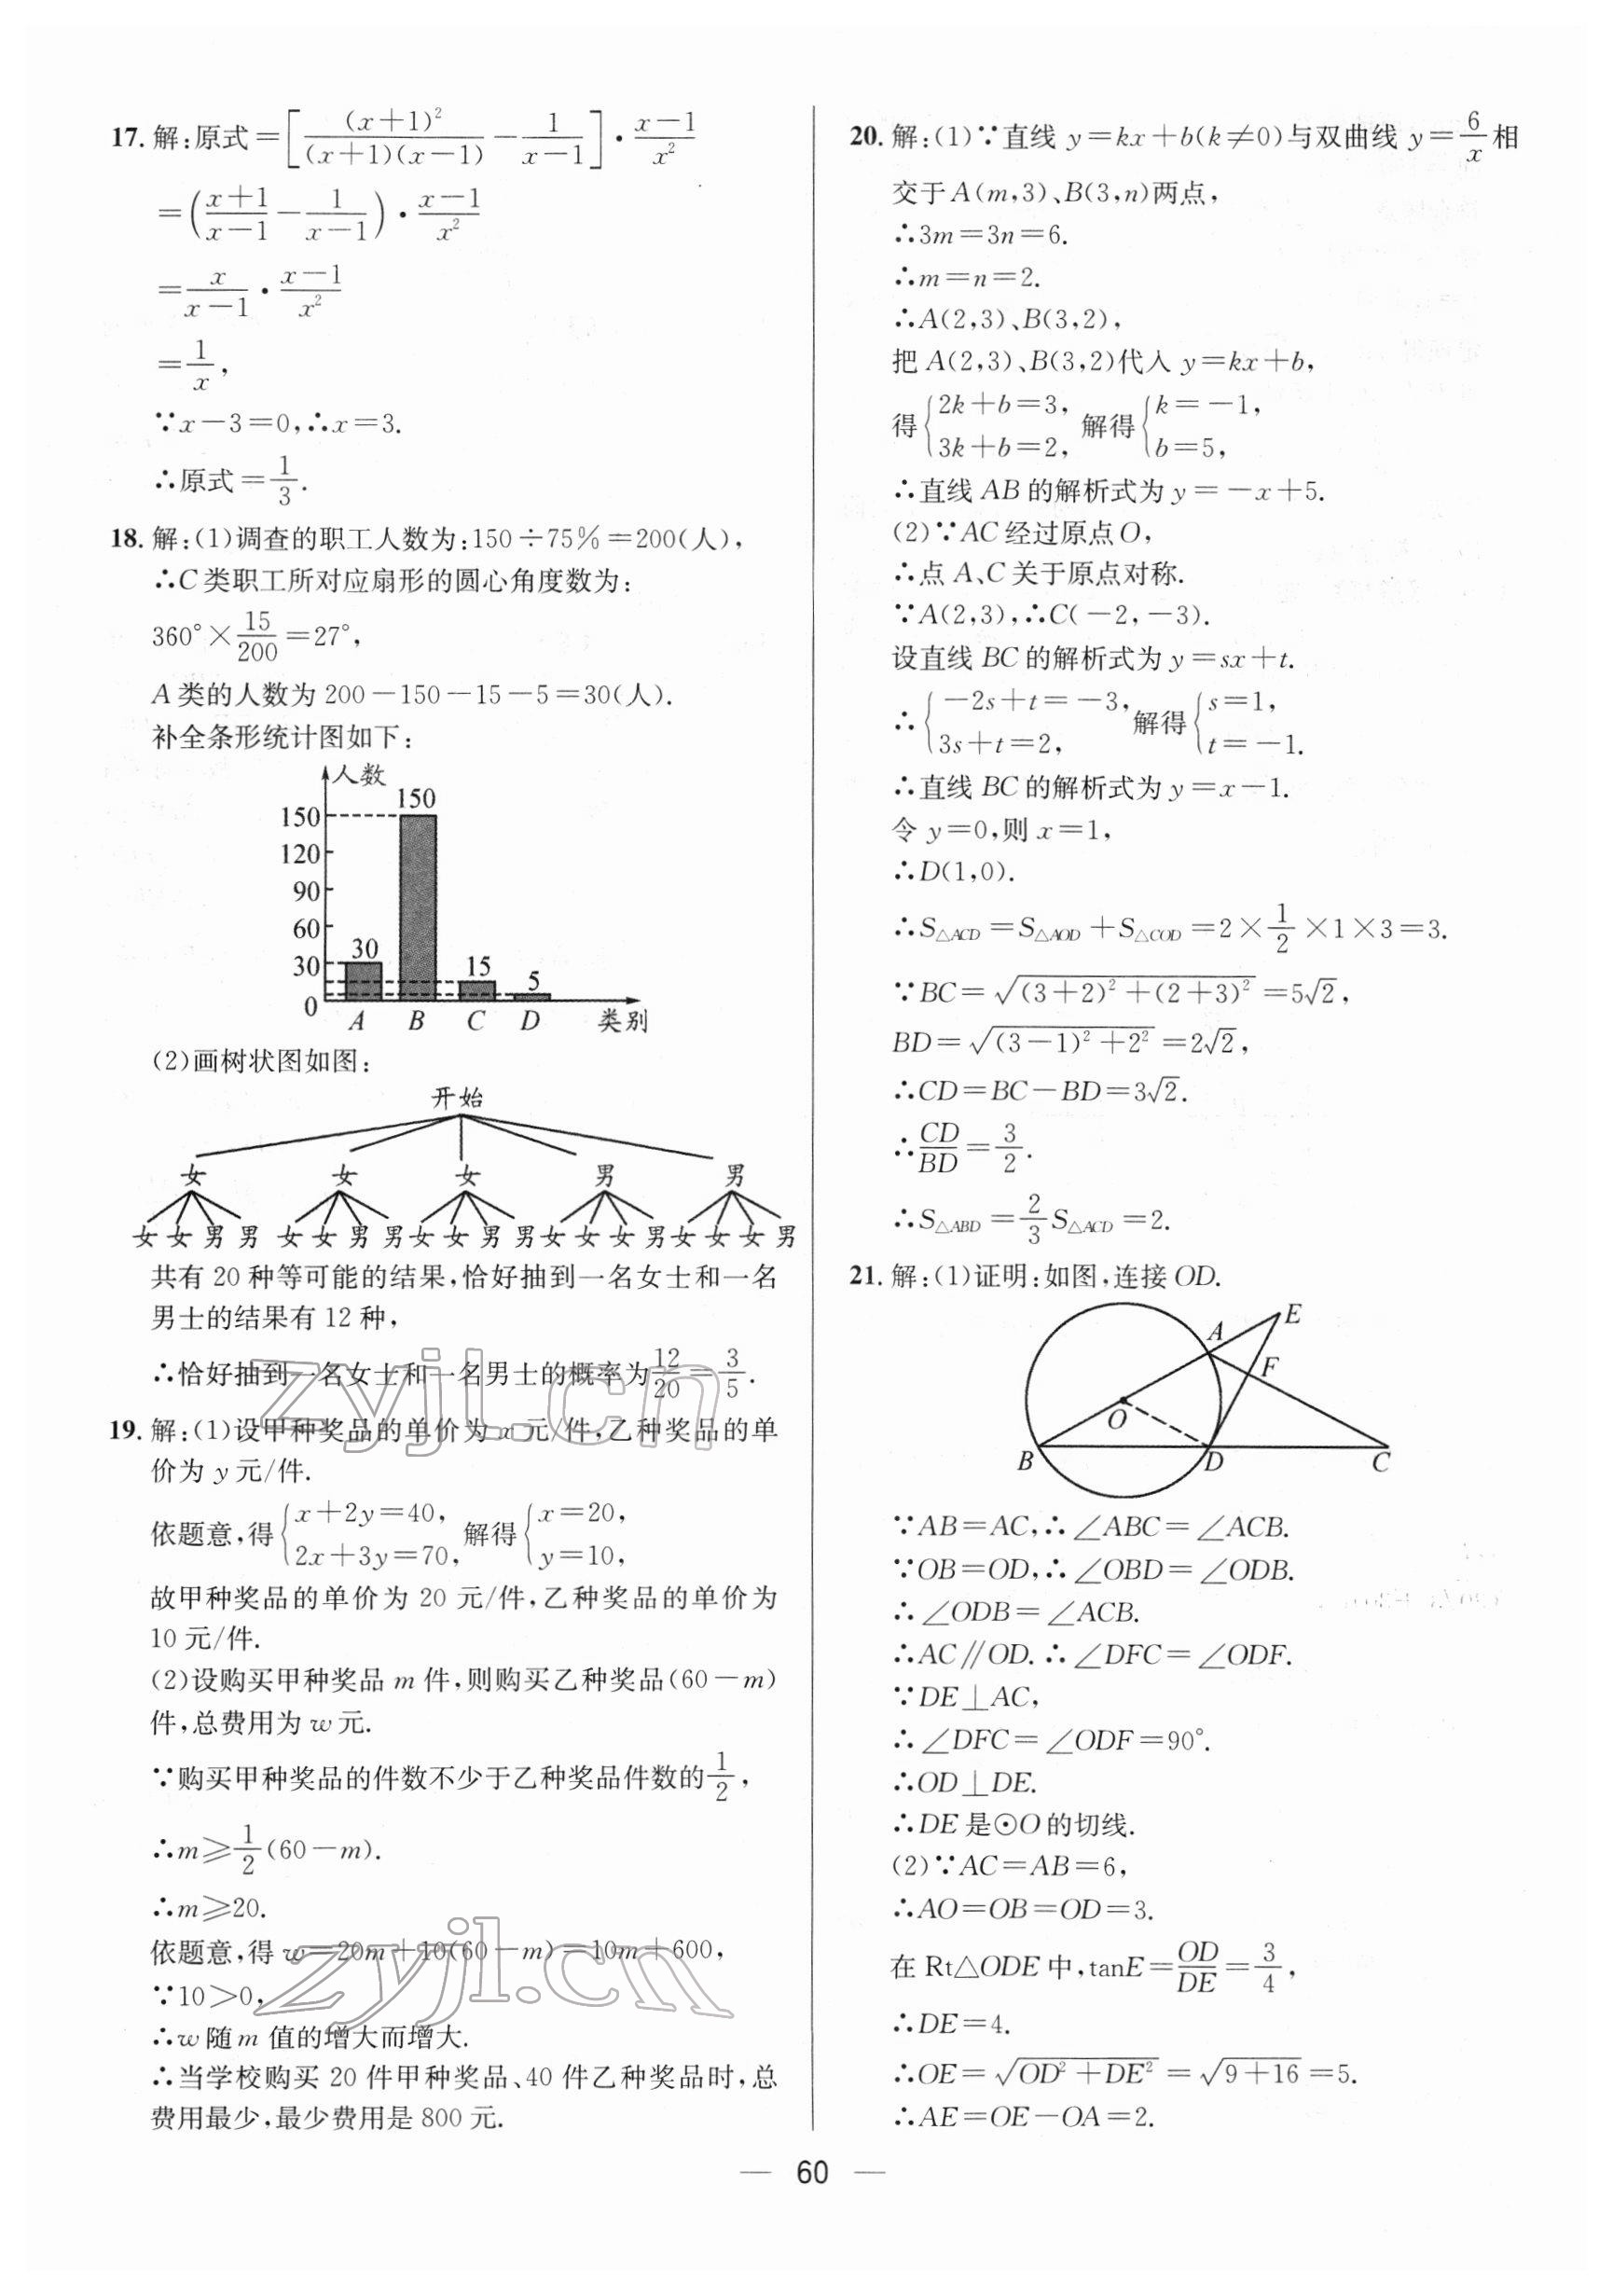 17. 解:原式=[(x+1)²/((x+1)(x−1)) − 1/(x−1)]·(x−1)/x²
=((x+1)/(x−1) − 1/(x−1))·(x−1)/x²
=x/(x−1)·(x−1)/x²
=1/x,
∵x−3=0,∴x=3.
∴原式=1/3.
18. 解:(1)调查的职工人数为:150÷75%=200(人),
∴C类职工所对应扇形的圆心角度数为:
360°×15/200=27°,
A类的人数为200−150−15−5=30(人).
补全条形统计图如下:
人数
150
150
120
90
60
30
30
15
5
0
A B C D 类别
(2)画树状图如图:
开始
女 女 女 男 男
女 女 男 男 女 女 男 男 女 女 男 男 女 女 女 男 女 女 女 男
共有20种等可能的结果,恰好抽到一名女士和一名
男士的结果有12种,
∴恰好抽到一名女士和一名男士的概率为12/20=3/5.
19. 解:(1)设甲种奖品的单价为x元/件,乙种奖品的单
价为y元/件.
依题意,得{x+2y=40, 2x+3y=70, 解得{x=20, y=10,
故甲种奖品的单价为20元/件,乙种奖品的单价为
10元/件.
(2)设购买甲种奖品m件,则购买乙种奖品(60−m)
件,总费用为w元.
∵购买甲种奖品的件数不少于乙种奖品件数的1/2,
∴m≥1/2(60−m).
∴m≥20.
依题意,得w=20m+10(60−m)=10m+600,
∵10>0,
∴w随m值的增大而增大.
∴当学校购买20件甲种奖品、40件乙种奖品时,总
费用最少,最少费用是800元.
20. 解:(1)∵直线y=kx+b(k≠0)与双曲线y=6/x相
交于A(m,3)、B(3,n)两点,
∴3m=3n=6.
∴m=n=2.
∴A(2,3)、B(3,2),
把A(2,3)、B(3,2)代入y=kx+b,
得{2k+b=3, 3k+b=2, 解得{k=−1, b=5,
∴直线AB的解析式为y=−x+5.
(2)∵AC经过原点O,
∴点A、C关于原点对称.
∵A(2,3),∴C(−2,−3).
设直线BC的解析式为y=sx+t.
∴{−2s+t=−3, 3s+t=2, 解得{s=1, t=−1.
∴直线BC的解析式为y=x−1.
令y=0,则x=1,
∴D(1,0).
∴S△ACD=S△AOD+S△COD=2×1/2×1×3=3.
∵BC=√((3+2)²+(2+3)²)=5√2,
BD=√((3−1)²+2²)=2√2,
∴CD=BC−BD=3√2.
∴CD/BD=3/2.
∴S△ABD=2/3S△ACD=2.
21. 解:(1)证明:如图,连接OD.
E
A
F
O
B D C
∵AB=AC,∴∠ABC=∠ACB.
∵OB=OD,∴∠OBD=∠ODB.
∴∠ODB=∠ACB.
∴AC∥OD.∴∠DFC=∠ODF.
∵DE⊥AC,
∴∠DFC=∠ODF=90°.
∴OD⊥DE.
∴DE是⊙O的切线.
(2)∵AC=AB=6,
∴AO=OB=OD=3.
在Rt△ODE中,tanE=OD/DE=3/4,
∴DE=4.
∴OE=√(OD²+DE²)=√(9+16)=5.
∴AE=OE−OA=2.
— 60 —
zyjl.cn
zyjl.cn